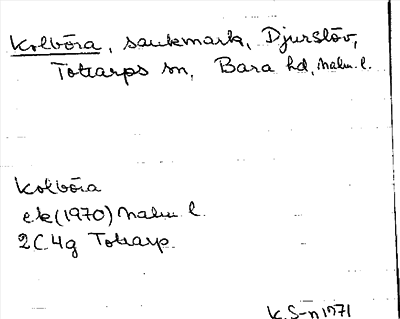 Kolbōra, sankmark, Djurslöv,
Tottarps sn, Bara hd, Malm. l.
Kolbōra
ek (1970) Malm l.
2C 4g Tottarp.
K.S-n 1971